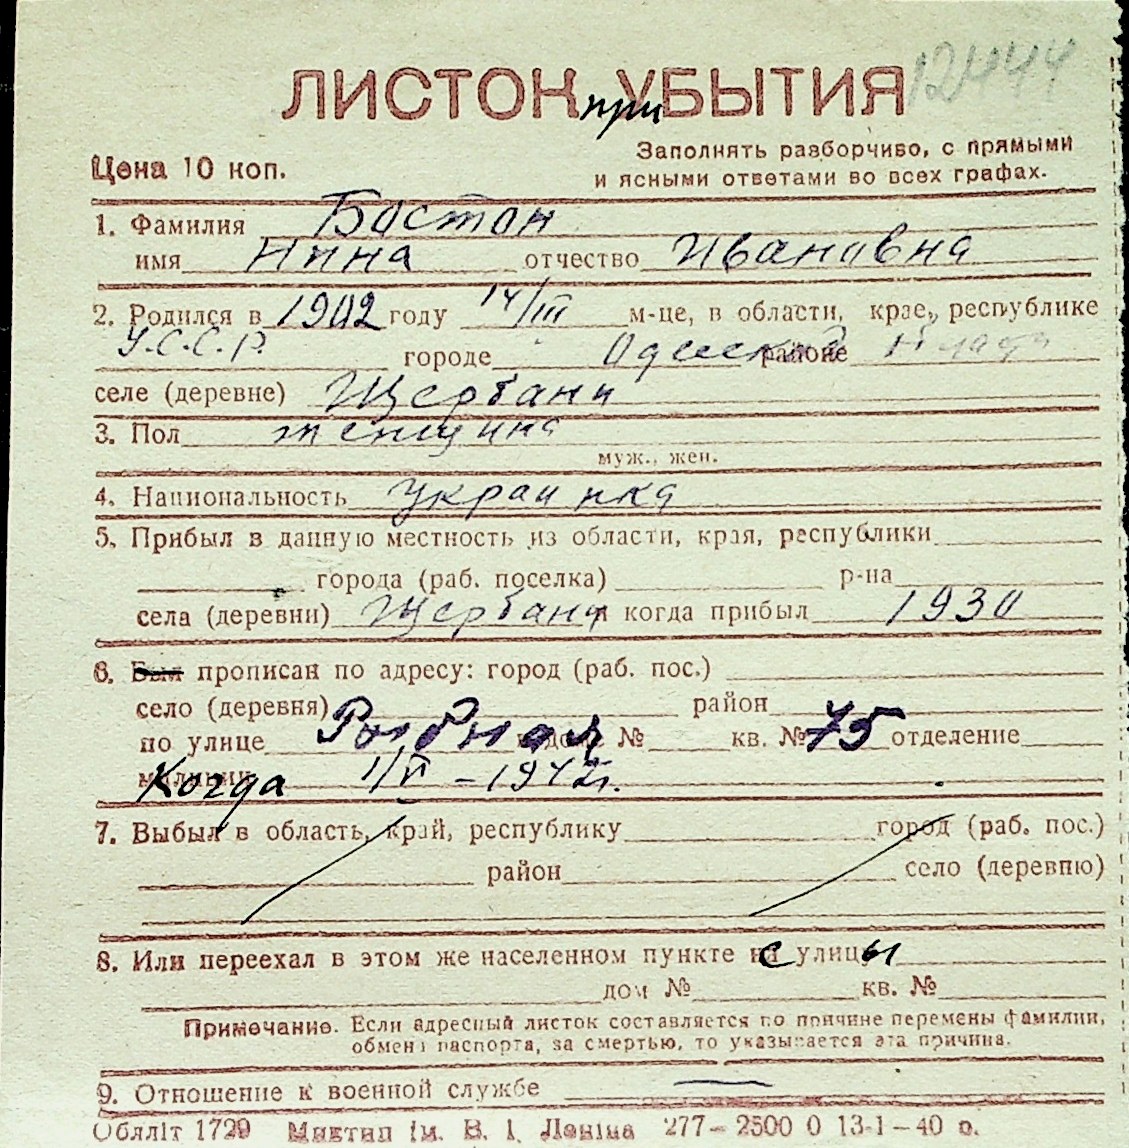 12444
ЛИСТОК при УБЫТИЯ
Цена 10 коп.
Заполнять разборчиво, с прямыми
и ясными ответами во всех графах.
1. Фамилия Бостон
имя Нина отчество Ивановна
2. Родился в 1902 году 14/III м-це, в области, крае, республике
У.С.С.Р. городе Одесской районе
селе (деревне) Щербани
3. Пол женщина
муж., жен.
4. Национальность украинка
5. Прибыл в данную местность из области, края, республики
города (раб. поселка) р-на
села (деревни) Щербани когда прибыл 1930
6. Был прописан по адресу: город (раб. пос.)
село (деревня) район
по улице Рыбная № кв. № 75 отделение
милиции Когда 1/VI - 1942г.
7. Выбыл в область, край, республику город (раб. пос.)
район село (деревню)
8. Или переехал в этом же населенном пункте с улицы
дом № кв. №
Примечание. Если адресный листок составляется по причине перемены фамилии,
обмена паспорта, за смертью, то указывается эта причина.
9. Отношение к военной службе —
Обліт 1729 Миктип ім. В. І. Леніна 277-2500 0 13-1-40 р.